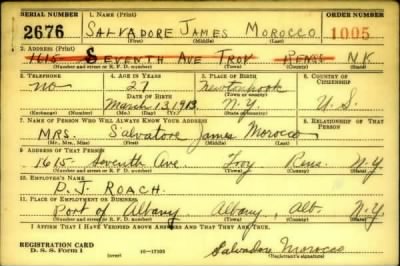 SERIAL NUMBER 1. NAME (Print) ORDER NUMBER
2676 SALVADORE JAMES MOROCCO 1005
(First) (Middle) (Last)
2. ADDRESS (Print)
1615 SEVENTH AVE TROY RENS N.Y.
(Number and street or R. F. D. number) (Town) (County) (State)
3. TELEPHONE 4. AGE IN YEARS 5. PLACE OF BIRTH 6. COUNTRY OF CITIZENSHIP
no 27 Newtonhook
DATE OF BIRTH (Town or county)
March 13, 1913 N.Y. U.S.
(Exchange) (Number) (Mo.) (Day) (Yr.) (State or country)
7. NAME OF PERSON WHO WILL ALWAYS KNOW YOUR ADDRESS 8. RELATIONSHIP OF THAT PERSON
MRS. Salvatore James Morocco
(Mr., Mrs., Miss) (First) (Middle) (Last)
9. ADDRESS OF THAT PERSON
1615- Seventh Ave. Troy Rens. N.Y.
(Number and street or R. F. D. number) (Town) (County) (State)
10. EMPLOYER'S NAME
P. J. ROACH.
11. PLACE OF EMPLOYMENT OR BUSINESS
Port of Albany Albany, Alb. N.Y.
(Number and street or R. F. D. number) (Town) (County) (State)
I AFFIRM THAT I HAVE VERIFIED ABOVE ANSWERS AND THAT THEY ARE TRUE.
REGISTRATION CARD
D. S. S. Form 1 (over) 16-17105 Salvadore Morocco
(Registrant's signature)